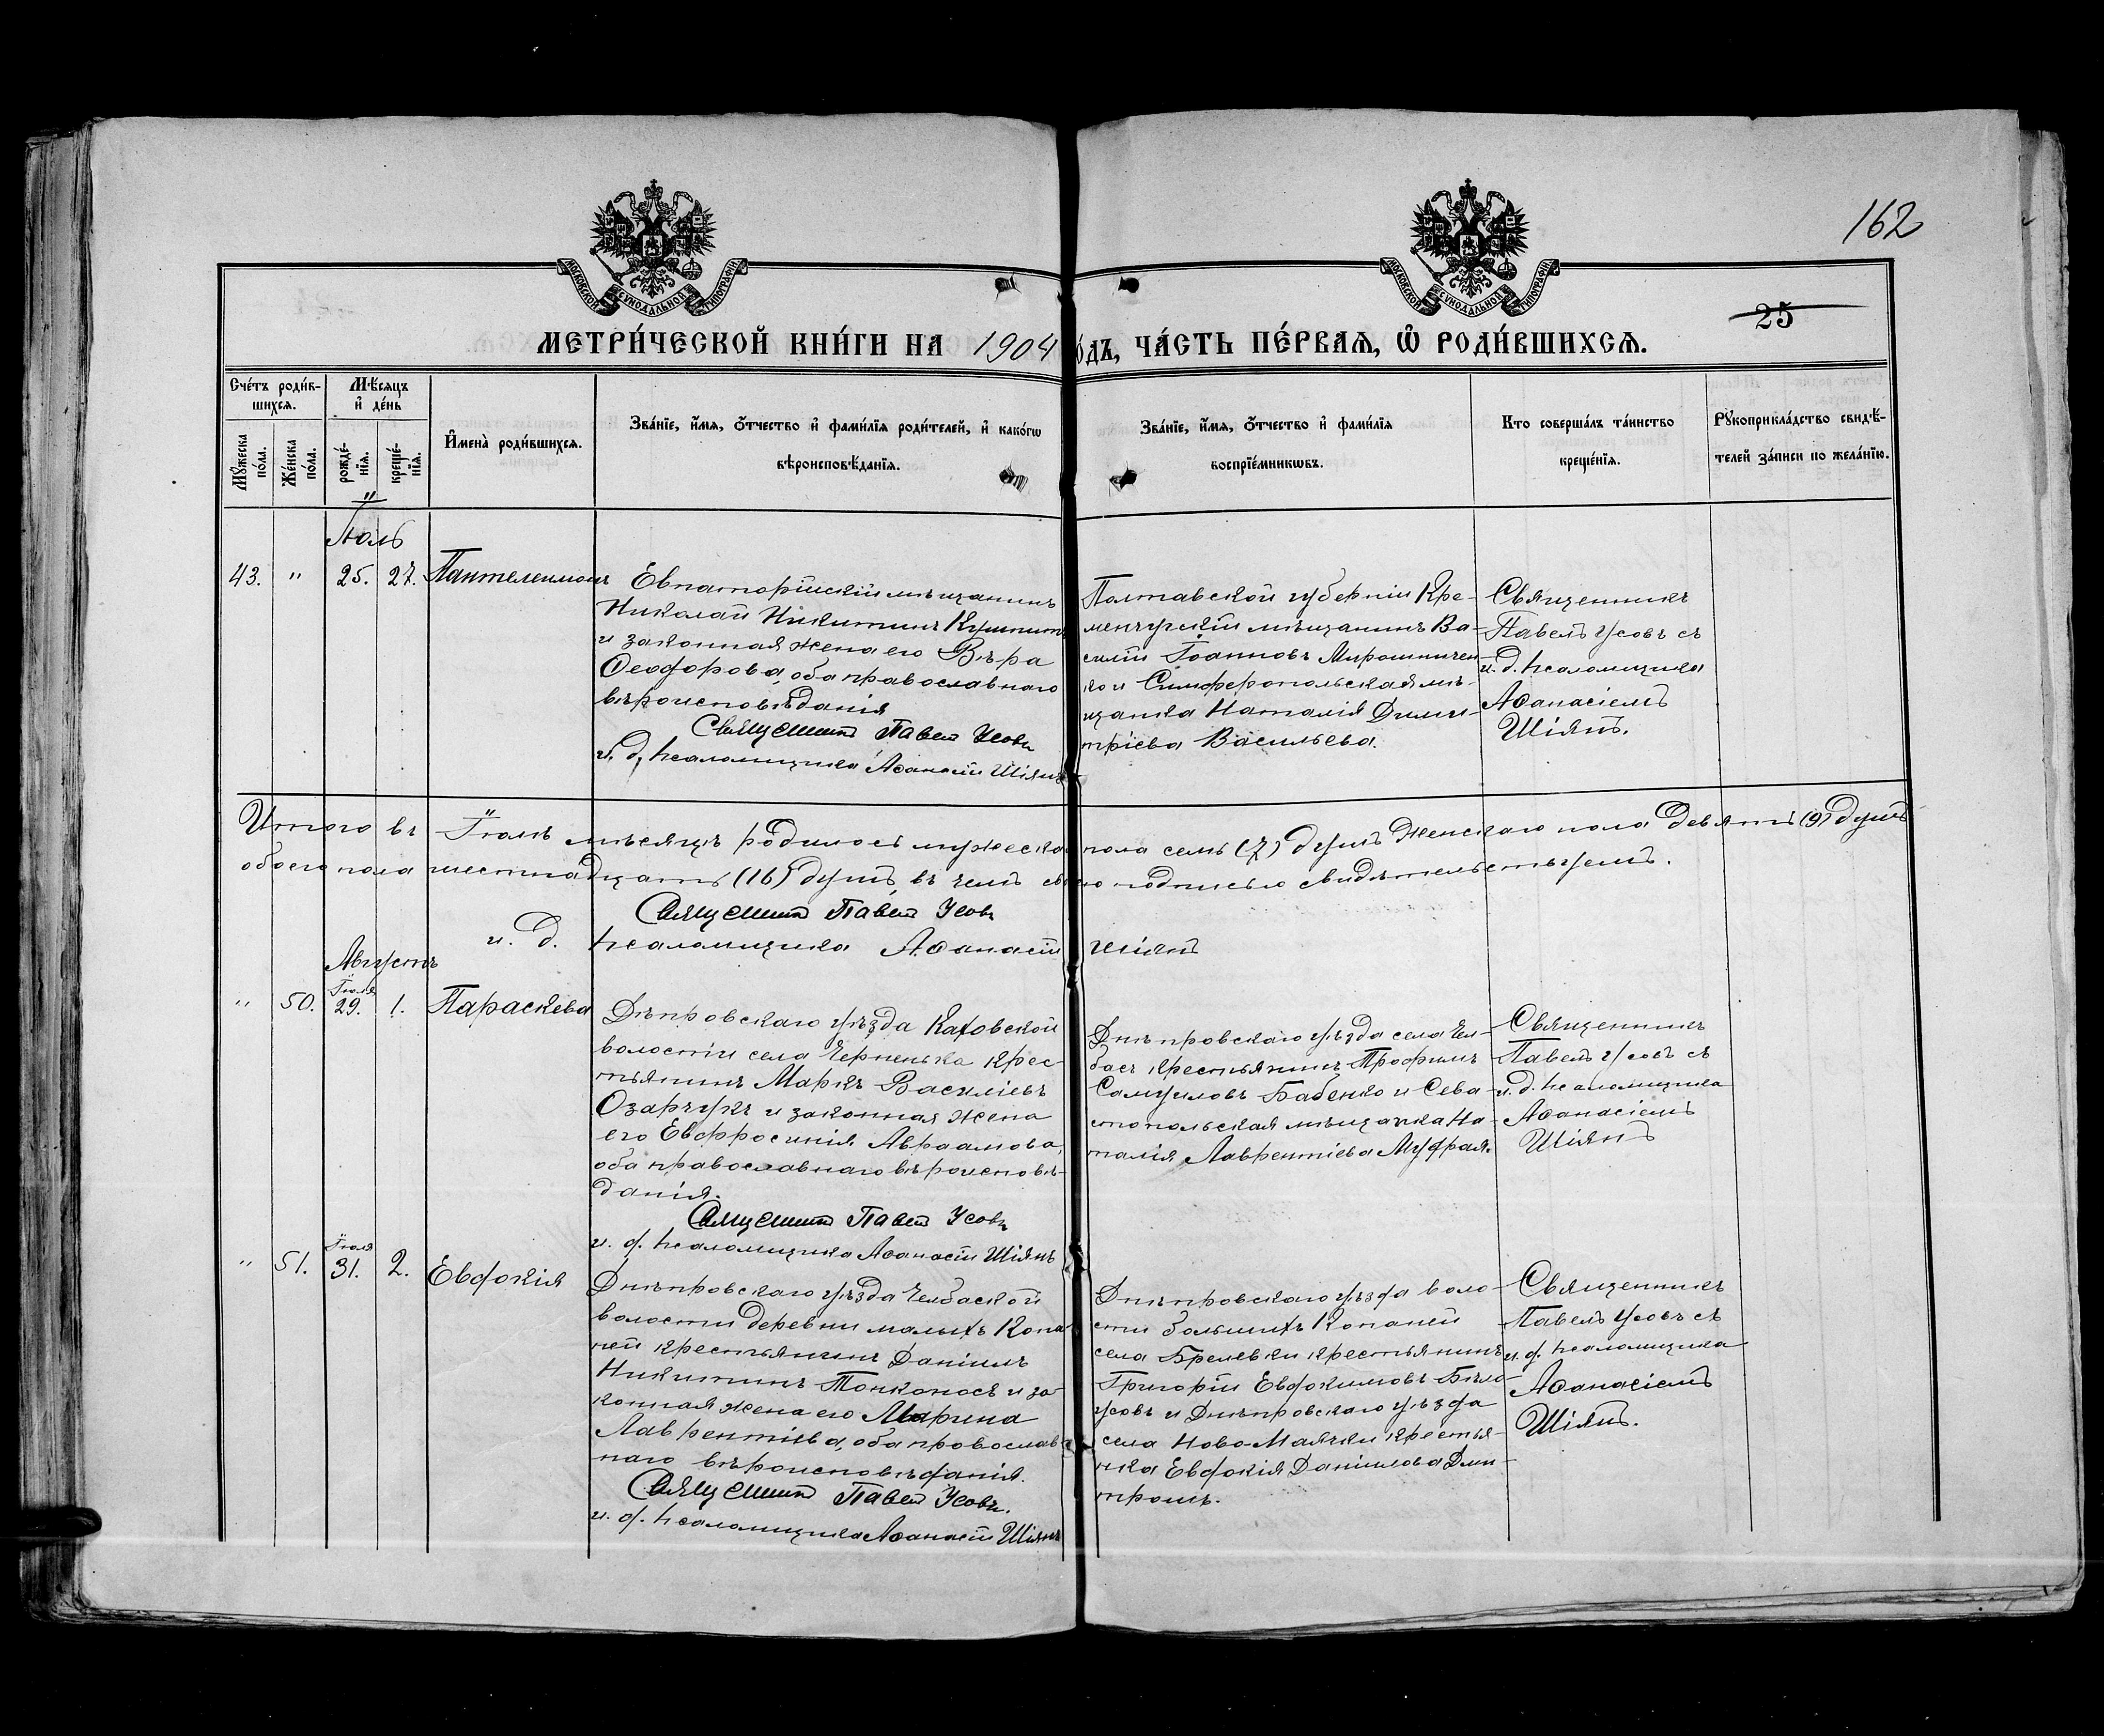 162
25
МОСКОВСКОЙ СУНОДАЛЬНОЙ ТИПОГРАФІИ
МОСКОВСКОЙ СУНОДАЛЬНОЙ ТИПОГРАФІИ
МЕТРИ́ЧЕСКОЙ КНИ́ГИ НА 1904 О́ДЪ, ЧА́СТЬ ПЕ́РВАѦ, Ѽ РОДИ́ВШИХСѦ.
Сче́тъ роди́в-
шихсѧ.
Мꙋ́жеска по́ла.
Же́нска по́ла.
Мѣ́сѧцъ
и҆ де́нь
рожде́-
нїѧ.
креще́-
нїѧ.
И҆мена̀ роди́вшихсѧ.
Зва́нїе, и҆́мѧ, ѻ҆́тчество и҆ фами́лїѧ роди́телей, и҆ како́гѡ
вѣроисповѣ́данїѧ.
Зва́нїе, и҆́мѧ, ѻ҆́тчество и҆ фами́лїѧ
воспрїе́мникѡвъ.
Кто соверша́лъ та́инство
креще́нїѧ.
Рꙋкоприкла́дство свидѣ́-
телей за́писи по жела́нїю.
Іюль
43. " 25. 27. Пантелеимонъ
Евпаторійскій мѣщанинъ
Николай Никитинъ
и законная жена его Вѣра
Ѳеодорова, оба православнаго
вѣроисповѣданія
Священникъ Павелъ Усовъ
и. д. псаломщика Аѳанасій Шіянъ
Полтавской губерніи Кре-
менчугскій мѣщанинъ Ва-
силій Іоанновъ Мирошничен-
ко и Симферопольская мѣ-
щанка Наталія Дими-
тріева Васильева.
Священникъ
Павелъ Усовъ съ
и. д. псаломщика
Аѳанасіемъ
Шіянъ.
Итого въ Іюлѣ мѣсяцѣ родилось мужеска пола семь (7) душъ женскаго пола девять (9) душъ
обоего пола шестнадцать (16) душъ, въ чемъ свою подписью свидѣтельствуемъ.
Священникъ Павелъ Усовъ
и. д. псаломщика Аѳанасій Шіянъ
Августъ
" 50. Іюля 29. 1. Параскева
Днѣпровскаго уѣзда Каховской
волости села Черненька крес-
тьянинъ Маркъ Василіевъ
Озарчукъ и законная жена
его Евфросинія Авраамова,
оба православнаго вѣроисповѣ-
данія.
Священникъ Павелъ Усовъ
и. д. псаломщика Аѳанасій Шіянъ
Днѣпровскаго уѣзда села Чел-
басъ крестьянинъ Трофимъ
Самуиловъ Бабенко и Сева-
стопольская мѣщанка На-
талія Лаврентіева Муфрая.
Священникъ
Павелъ Усовъ съ
и. д. псаломщика
Аѳанасіемъ
Шіянъ
" 51. Іюля 31. 2. Евдокія
Днѣпровскаго уѣзда Челбаской
волости деревни малыхъ Копа-
ней крестьянинъ Даніилъ
Никитинъ Тонконосъ и за-
конная жена его Марина
Лаврентіева, оба православ-
наго вѣроисповѣданія.
Священникъ Павелъ Усовъ.
и. д. псаломщика Аѳанасій Шіянъ
Днѣпровскаго уѣзда воло-
сти большихъ Копаней
села Брелевки крестьянинъ
Григорій Евдокимовъ Бѣло-
усовъ и Днѣпровскаго уѣзда
села Ново Маячки крестья-
нка Евдокія Даніилова Дми-
трошъ.
Священникъ
Павелъ Усовъ съ
и. д. псаломщика
Аѳанасіемъ
Шіянъ.